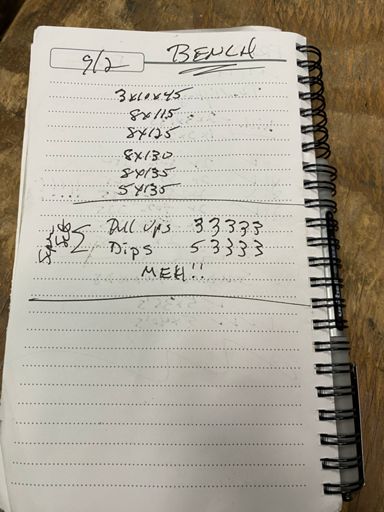 9/2 BENCH
3x10x45
8x115
8x125
8x130
8x135
5x135
Super Sets
Pull ups 3 3 3 3 3
Dips 5 3 3 3 3
MEH!!